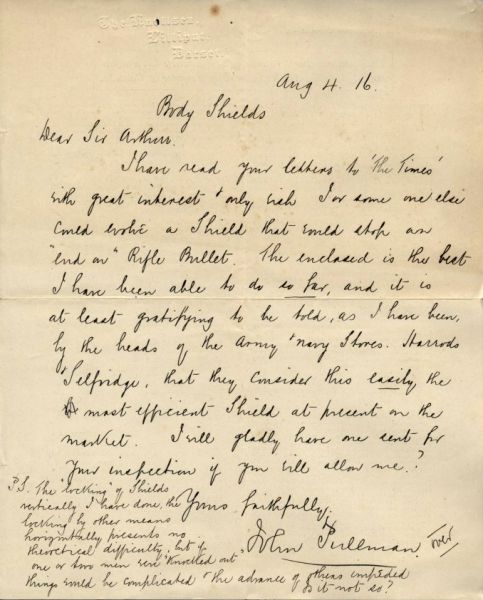 The Knowlson,
Lilliput,
Dorset.
Aug 4. 16.
Body Shields
Dear Sir Arthur.
I have read your letters to 'the Times'
with great interest & only wish I or some one else
could evolve a Shield that would stop an
"end on" Rifle Bullet. The enclosed is the best
I have been able to do so far, and it is
at least gratifying to be told, as I have been,
by the heads of the Army & Navy Stores. Harrods
Selfridge, that they consider this easily the
most efficient Shield at present on the
market. I will gladly have one sent for
your inspection if you will allow me.?
Yours faithfully,
John Pullman
over
P.S. The "locking" of Shields
vertically I have done, the
locking by other means
horizontally presents no
theoretical difficulty, but if
one or two men were "Knocked out"
things would be complicated & the advance of others impeded
is it not so?